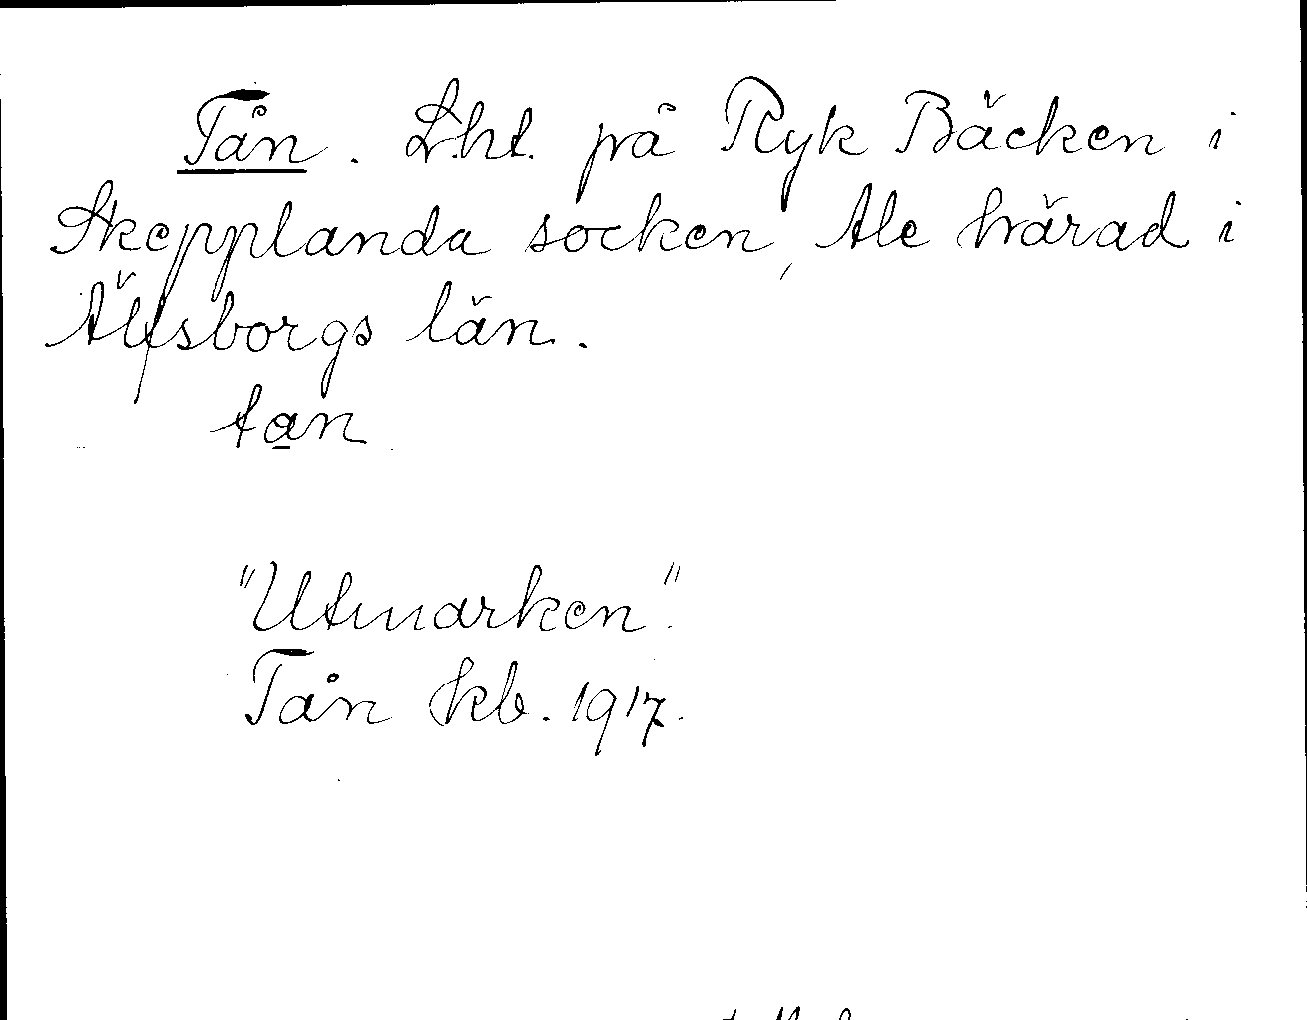 Tån. Lht. på Ryk Bäcken i
Skepplanda socken, Ale härad i
Älfsborgs län.
tan
"Utmarken".
Tån kb. 1917.